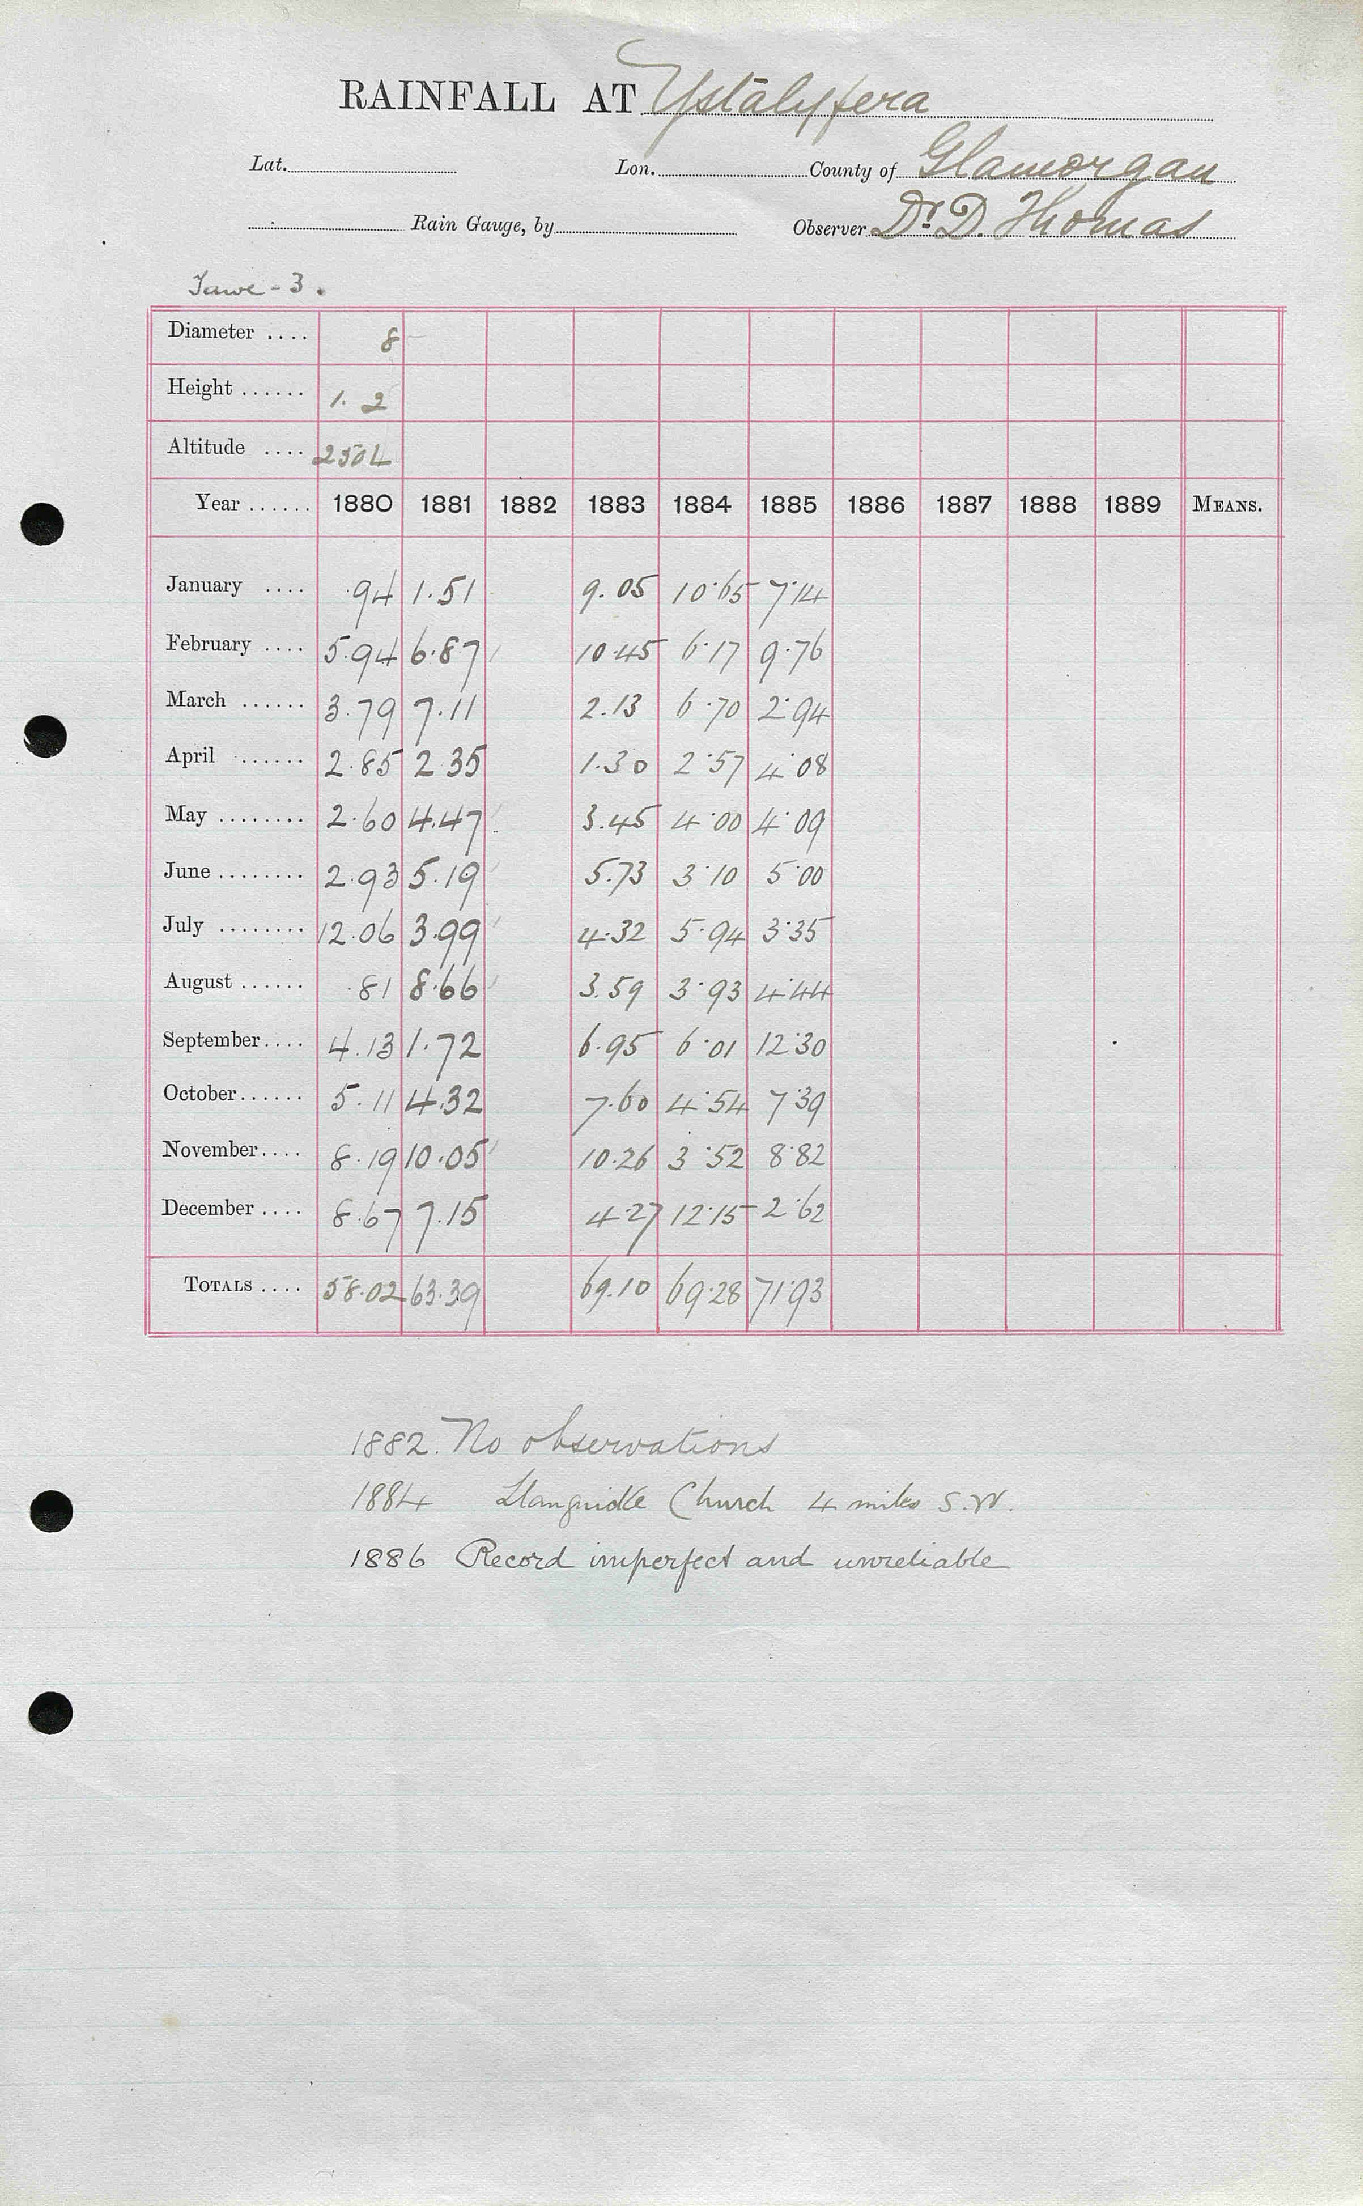 RAINFALL AT Ystalyfera
Lat. Lon. County of Glamorgan
Rain Gauge, by Observer Dr. D. Thomas
Tawe - 3.
Diameter .... 8
Height ...... 1. 2
Altitude .... 250
Year ...... 1880 1881 1882 1883 1884 1885 1886 1887 1888 1889 MEANS.
January .... .94 1.51 9.05 10.65 7.14
February .... 5.94 6.87 10.45 6.17 9.76
March ...... 3.79 7.11 2.13 6.70 2.94
April ...... 2.85 2.35 1.30 2.57 4.08
May ........ 2.60 4.47 3.45 4.00 4.09
June ........ 2.93 5.19 5.73 3.10 5.00
July ........ 12.06 3.99 4.32 5.94 3.35
August ...... .81 8.66 3.59 3.93 4.44
September.... 4.13 1.72 6.95 6.01 12.30
October...... 5.11 4.32 7.60 4.54 7.39
November.... 8.19 10.05 10.26 3.52 8.82
December .... 8.67 7.15 4.27 12.15 2.62
TOTALS .... 58.02 63.39 69.10 69.28 71.93
1882. No observations
1884 Church 4 miles S.W.
1886 Record imperfect and unreliable